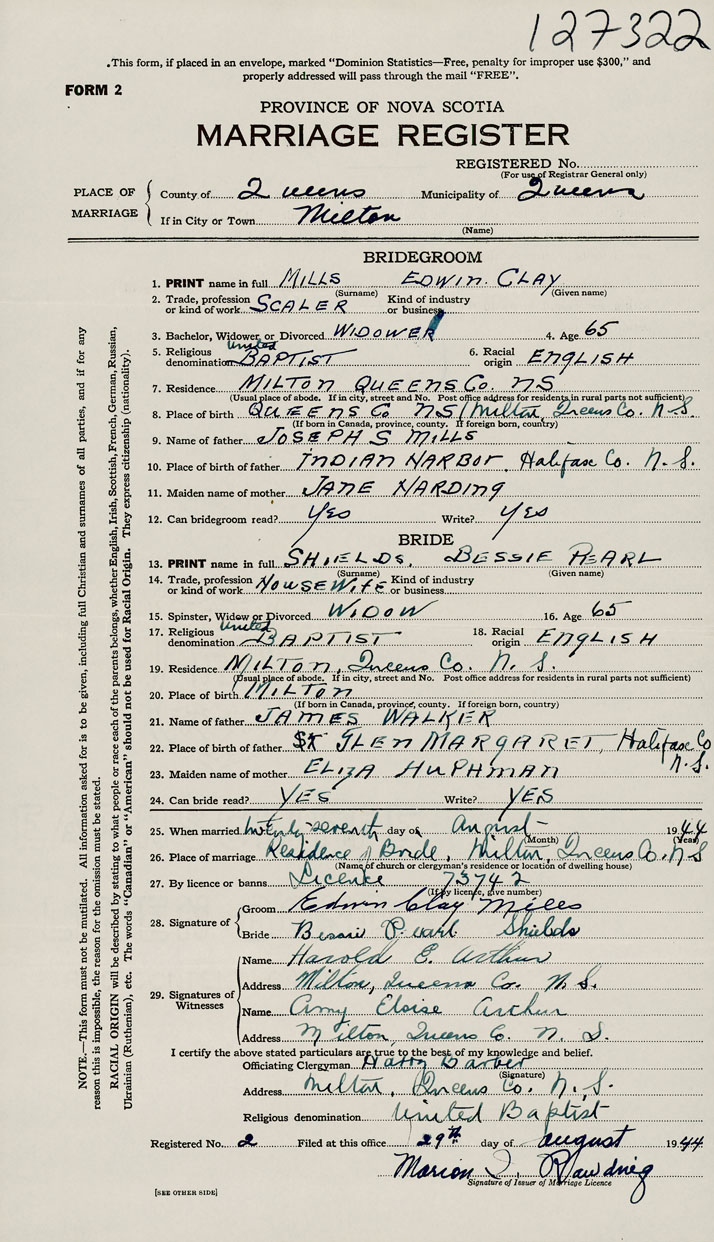 127322
.This form, if placed in an envelope, marked "Dominion Statistics—Free, penalty for improper use $300," and
properly addressed will pass through the mail "FREE".
FORM 2
PROVINCE OF NOVA SCOTIA
MARRIAGE REGISTER
REGISTERED No.
(For use of Registrar General only)
PLACE OF MARRIAGE
County of Queens Municipality of Queens
If in City or Town Milton
(Name)
BRIDEGROOM
1. PRINT name in full MILLS EDWIN CLAY
(Surname) (Given name)
2. Trade, profession or kind of work SCALER Kind of industry or business
3. Bachelor, Widower or Divorced WIDOWER 4. Age 65
5. Religious denomination United BAPTIST 6. Racial origin ENGLISH
7. Residence MILTON QUEENS Co. NS
(Usual place of abode. If in city, street and No. Post office address for residents in rural parts not sufficient)
8. Place of birth QUEENS Co NS (Milton, Queens Co. N.S.
(If born in Canada, province, county. If foreign born, country)
9. Name of father JOSEPH S MILLS
10. Place of birth of father INDIAN HARBOR, Halifax Co. N. S.
11. Maiden name of mother JANE HARDING
12. Can bridegroom read? Yes Write? Yes
BRIDE
13. PRINT name in full SHIELDS, BESSIE PEARL
(Surname) (Given name)
14. Trade, profession or kind of work HOUSEWIFE Kind of industry or business
15. Spinster, Widow or Divorced WIDOW 16. Age 65
17. Religious denomination United BAPTIST 18. Racial origin ENGLISH
19. Residence MILTON, Queens Co. N. S.
(Usual place of abode. If in city, street and No. Post office address for residents in rural parts not sufficient)
20. Place of birth MILTON
(If born in Canada, province, county. If foreign born, country)
21. Name of father JAMES WALKER
22. Place of birth of father GLEN MARGARET, Halifax Co N.S.
23. Maiden name of mother ELIZA HUPHMAN
24. Can bride read? YES Write? YES
25. When married twenty-seventh day of August 1944
(Month) (Year)
26. Place of marriage Residence of Bride, Milton, Queens Co. N S
(Name of church or clergyman's residence or location of dwelling house)
27. By licence or banns Licence 73742
(If by licence, give number)
28. Signature of
Groom Edwin Clay Mills
Bride Bessie Pearl Shields
29. Signatures of Witnesses
Name Harold E. Arthur
Address Milton, Queens Co. N. S.
Name Amy Eloise Arthur
Address Milton, Queens Co. N. S.
I certify the above stated particulars are true to the best of my knowledge and belief.
Officiating Clergyman Harry Barber
(Signature)
Address Milton, Queens Co. N. S.
Religious denomination United Baptist
Registered No. 2 Filed at this office 29th day of august 1944
Marion Rawding
Signature of Issuer of Marriage Licence
[SEE OTHER SIDE]
NOTE.—This form must not be mutilated. All information asked for is to be given, including full Christian and surnames of all parties, and if for any
reason this is impossible, the reason for the omission must be stated.
RACIAL ORIGIN will be described by stating to what people or race each of the parents belongs, whether English, Irish, Scottish, French, German, Russian,
Ukrainian (Ruthenian), etc. The words "Canadian" or "American" should not be used for Racial Origin. They express citizenship (nationality).